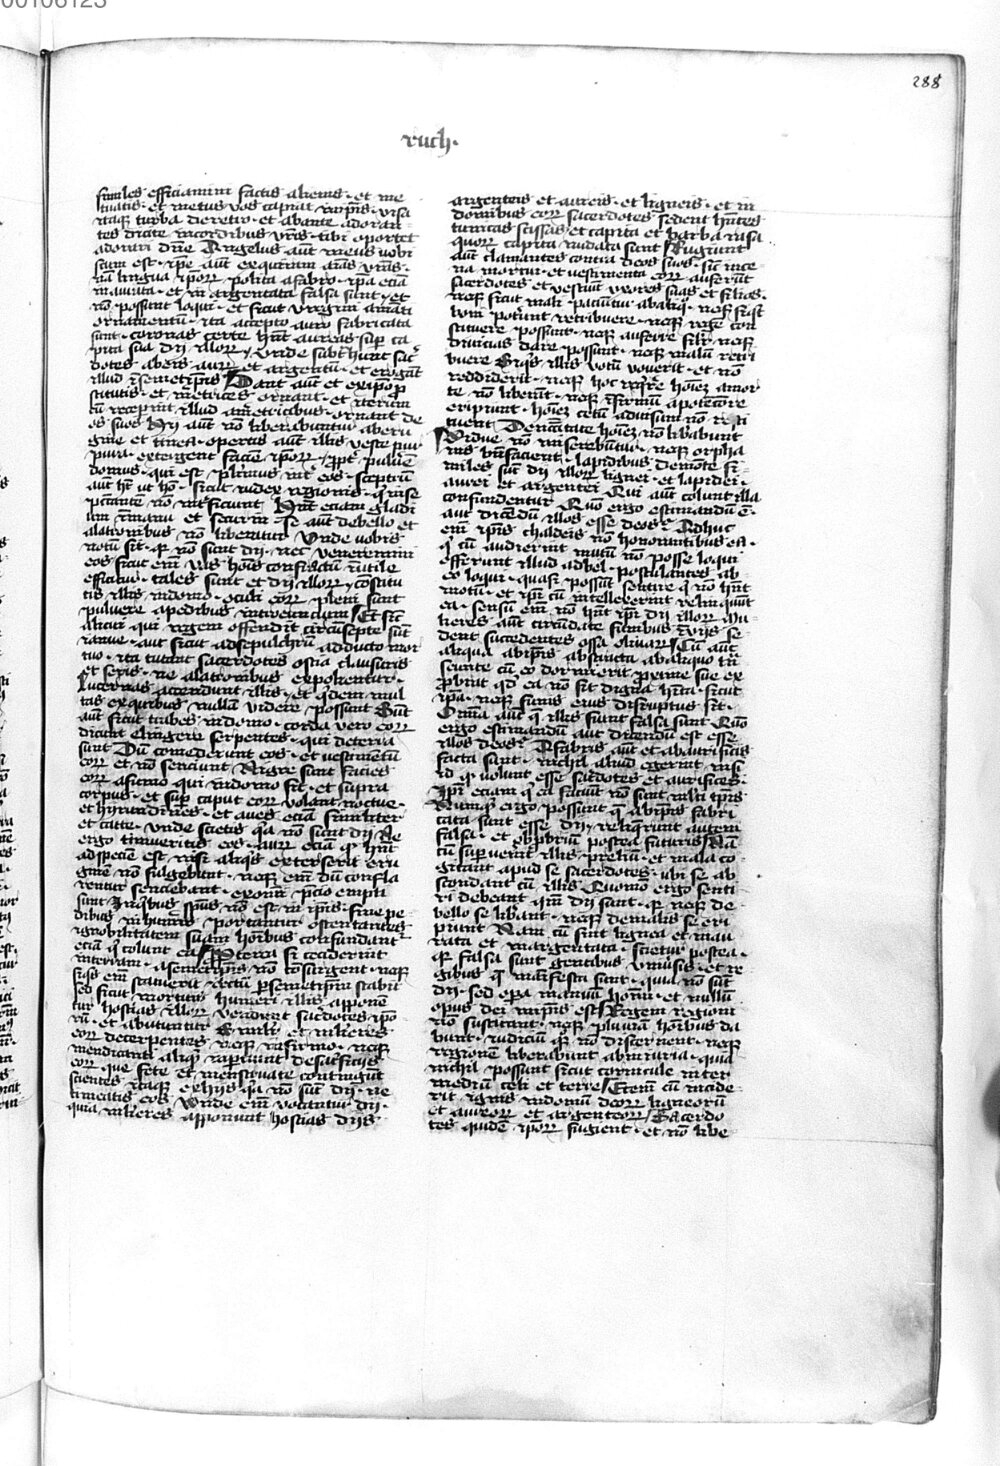 288
ruch.
similes efficiamini factis alienis. et me
tuatis. et metus vos capiat in ip̄is. visa
itaqꝫ turba deretro. et abante adoran
tes dicite in cordibus vr̄is. tibi oportet
adorari dn̄e Angelus aūt meus vobi
scum est. ip̄e aūt exquiram aīas vr̄as.
nā lingua ip̄oꝝ polita a fabro. ip̄a etiā
inaurata. et in argentata falsa sunt. et
nō possunt loqui. et sicut virgini amāti
ornamentū. ita accepto auro fabricata
sunt. coronas certe hn̄t aureas sup̄ ca
pita sua dij illoꝝ. vnde subt̄hunt sac̄
dotes ab eis auꝝ et argentū. et erogāt
illud ī semetip̄os Dant aūt et ex ip̄o p̄
stitutis. et meretrices ornant. et iterum
cū recep̄int illud a meretricibus. ornant de
os suos Hij aūt nō liberabuntur ab eru
gine et tinea. opertis aūt illis veste pur
purea. extergent faciē ip̄oꝝ. ꝓpt̄ puluerē
domus. qui est plurimus int̄ eos. sceptrū
aūt ht̄ ut hō. sicut iudex regionis. qͥ in se
peccantē nō int̄ficiunt Hn̄t etiam gladi
um ī manu et securim se aūt de bello et
a latronibus nō liberāt Vnde vobis
notū sit. qꝛ nō sunt dij. nec venereminí
eos sicut em̄ vas hoīs confractū īutile
efficitur. tales sunt et dij illoꝝ. constitu
tis illis in domo. oculi eoꝝ pleni sunt
puluere a pedibus introeuncium Et sic̄
alicui qui regem offendit circūsepte sūt
ianue. aut sicut ad sepulchrū adducto mor
tuo. ita tutant sacerdotes ostia clausuris
et seris. ne a latronibus expolientur.
lucernas accendunt illis. et qͥdem mul
tas ex quibus nullā videre possunt Sūt
aūt sicut trabes in domo. corda vero eoꝝ
dicunt elingere serpentes. qui de terra
sunt Dū comederunt eos. et vestimētū
eoꝝ et nō senciunt Nigre sunt facies
eoꝝ a fumo qui in domo fit. et supra
corpus. et sup̄ caput eoꝝ volant noctue.
et hyrundines. et aues etiā similiter
et catte. vnde scietis qͥa nō sunt dij Ne
ergo timueritis eos. auꝝ etiā qͦ hn̄t
ad speciem est. nisi aliqͥs exterserit eru
ginē nō fulgebunt. neqꝫ em̄ dū confla
rentur senciebant. ex om̄i p̄cio empti
sunt In qͥbus sp̄us nō est in ip̄is. sine pe
dibus in humeris portantur ostentantes
ignobilitatem suam hoībus confundant
etiā qͥ colunt ea Ppterea si ceciderint
in terram. a semetip̄is nō cōsurgent. neqꝫ
siqͥs eum statuerit rectū p̄ semetip̄m stabit
sed sicut mortuis humeri illis apponē
tur hostias illoꝝ vendunt sac̄dotes ip̄o
rū. et abutuntur Similr̄ et mlieres
eoꝝ decerpentes. neqꝫ infirmo. neqꝫ
mendicanti aliqͥd impertiunt de sacrificijs
eoꝝ que fete et menstruate contingunt
scientes itaqꝫ ex hijs qͥa nō sunt dij. ne
timeatis eos Vnde em̄ vocantur dij.
quia mlieres apponunt hostias dijs
argenteis et aureis. et ligneis. et in
domibus eoꝝ sacerdotes sedent hn̄tes
tunicas scissas. et capita et barba rasa
quoꝝ capita nudata sunt Rugiunt
aūt clamantes contra deos suos. sic̄ in ce
na mortui. et vestimenta eoꝝ auferūt
sacerdotes et vestiūt vxores suas et filios.
neqꝫ sicut mali paciuntur ab aliqͦ. neqꝫ si qͥd
boni poterunt retribuere. neqꝫ regē con
stituere possunt. neqꝫ auferre silr̄ neqꝫ
diuicias dare possunt. neqꝫ malū retri
buere Siqͥs illis votū vouerit. et nō
reddiderit. neqꝫ hoc reqͥrūt hoīez a mor
te nō liberūt. neqꝫ īfirmū a potēciore
eripiunt. hoīez cecū ad visum nō resti
tuent De necessitate hoīez nō liberabunt
Vidue nō miserebuntur. neqꝫ orpha
nis bn̄facient. lapidibus de mōte si
miles sūt dij illoꝝ lignei. et lapidei.
aurei et argentei Qui aūt colunt illa
confundentur Quō ergo estimandū ē.
aut dicendū illos esse deos Adhuc
em̄ ip̄is chaldeis nō honorantibus ea.
qͥ cū audierint mutū nō posse loqui
offerunt illud ad bel. postulantes ab
eo loqui. quasi possūt sentire qͥ nō hn̄t
motū. et ip̄i cū intellexerint relinquūt
ea. sensū em̄ nō hn̄t ip̄i dij illoꝝ Mu
lieres aūt circūdate funibus ī vijs se
dent succedentes ossa oliuaꝝ Cū aūt
aliqua ab ip̄is abstracta ab aliquo trā
seunte cū eo dormierit ꝓxime sue ex
ꝓbrat qd̄ ea nō sit digna hita. sicut
ip̄a. neqꝫ funis eius disruptus sit.
Om̄ia aūt q̄ illis fiunt falsa sunt Quō
ergo estimandū aut dicendū est esse
illos deos A fabris aūt et ab aurificis
facta sunt. nichil aliud erunt nisi
id qͦ volunt esse sac̄dotes et aurifices.
Ip̄i etiam qͥ ea faciūt nō sunt mlti tp̄ris
Nunqͥd ergo possunt q̄ ab ip̄is fabri
cata sunt esse dij reliqerunt autem
falsa. et obprobriū postea futuris Nā
cū sup̄uenit illis preliū. et mala co
gitant apud se sacerdotes. ubi se ab
scondant cū illis Quomō ergo senti
ri debeant qm̄ dij sunt. qꝛ neqꝫ de
bello se librant. neqꝫ de malis se eri
piunt Nam cū sint lignea et inau
rata et inargentata. scietur postea.
qꝛ falsa sunt gentibus vniuersis. et re
gibus q̄ manifesta sunt. quia nō sūt
dij. sed opera manuū hoīm. et nullū
opus dei in ip̄is est Regem regioni
nō suscitant. neqꝫ pluuiā hoībus da
bunt. iudiciū qꝫ nō discernent. neqꝫ
regionē liberabunt ab iniuria. quia
nichil possunt sicut cornicule inter
mediū celi et terre Etem̄ cū incide
rit ignis in domū deoꝝ ligneorū
et aureoꝝ et argenteoꝝ Sacerdo
tes quidē ip̄oꝝ fugient. et nō libe